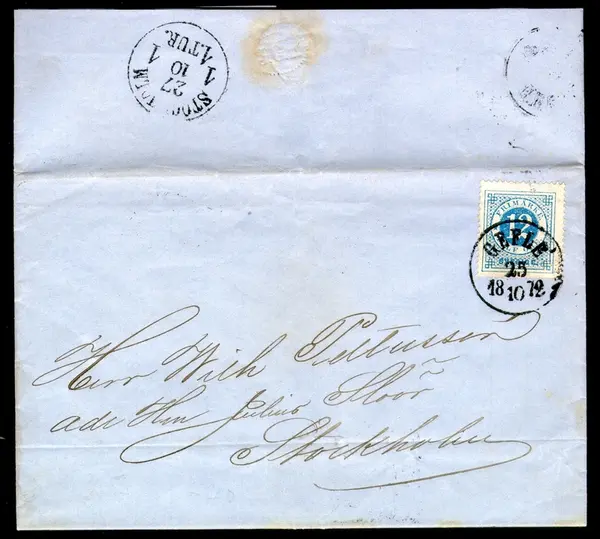 STOCKHOLM
1 TUR. 1
27
10
FRIMÄRKE
12
GEFLE
25
18 10 72
Herr Wilh Pettersson
adr Hrr Julius Sloör
Stockholm